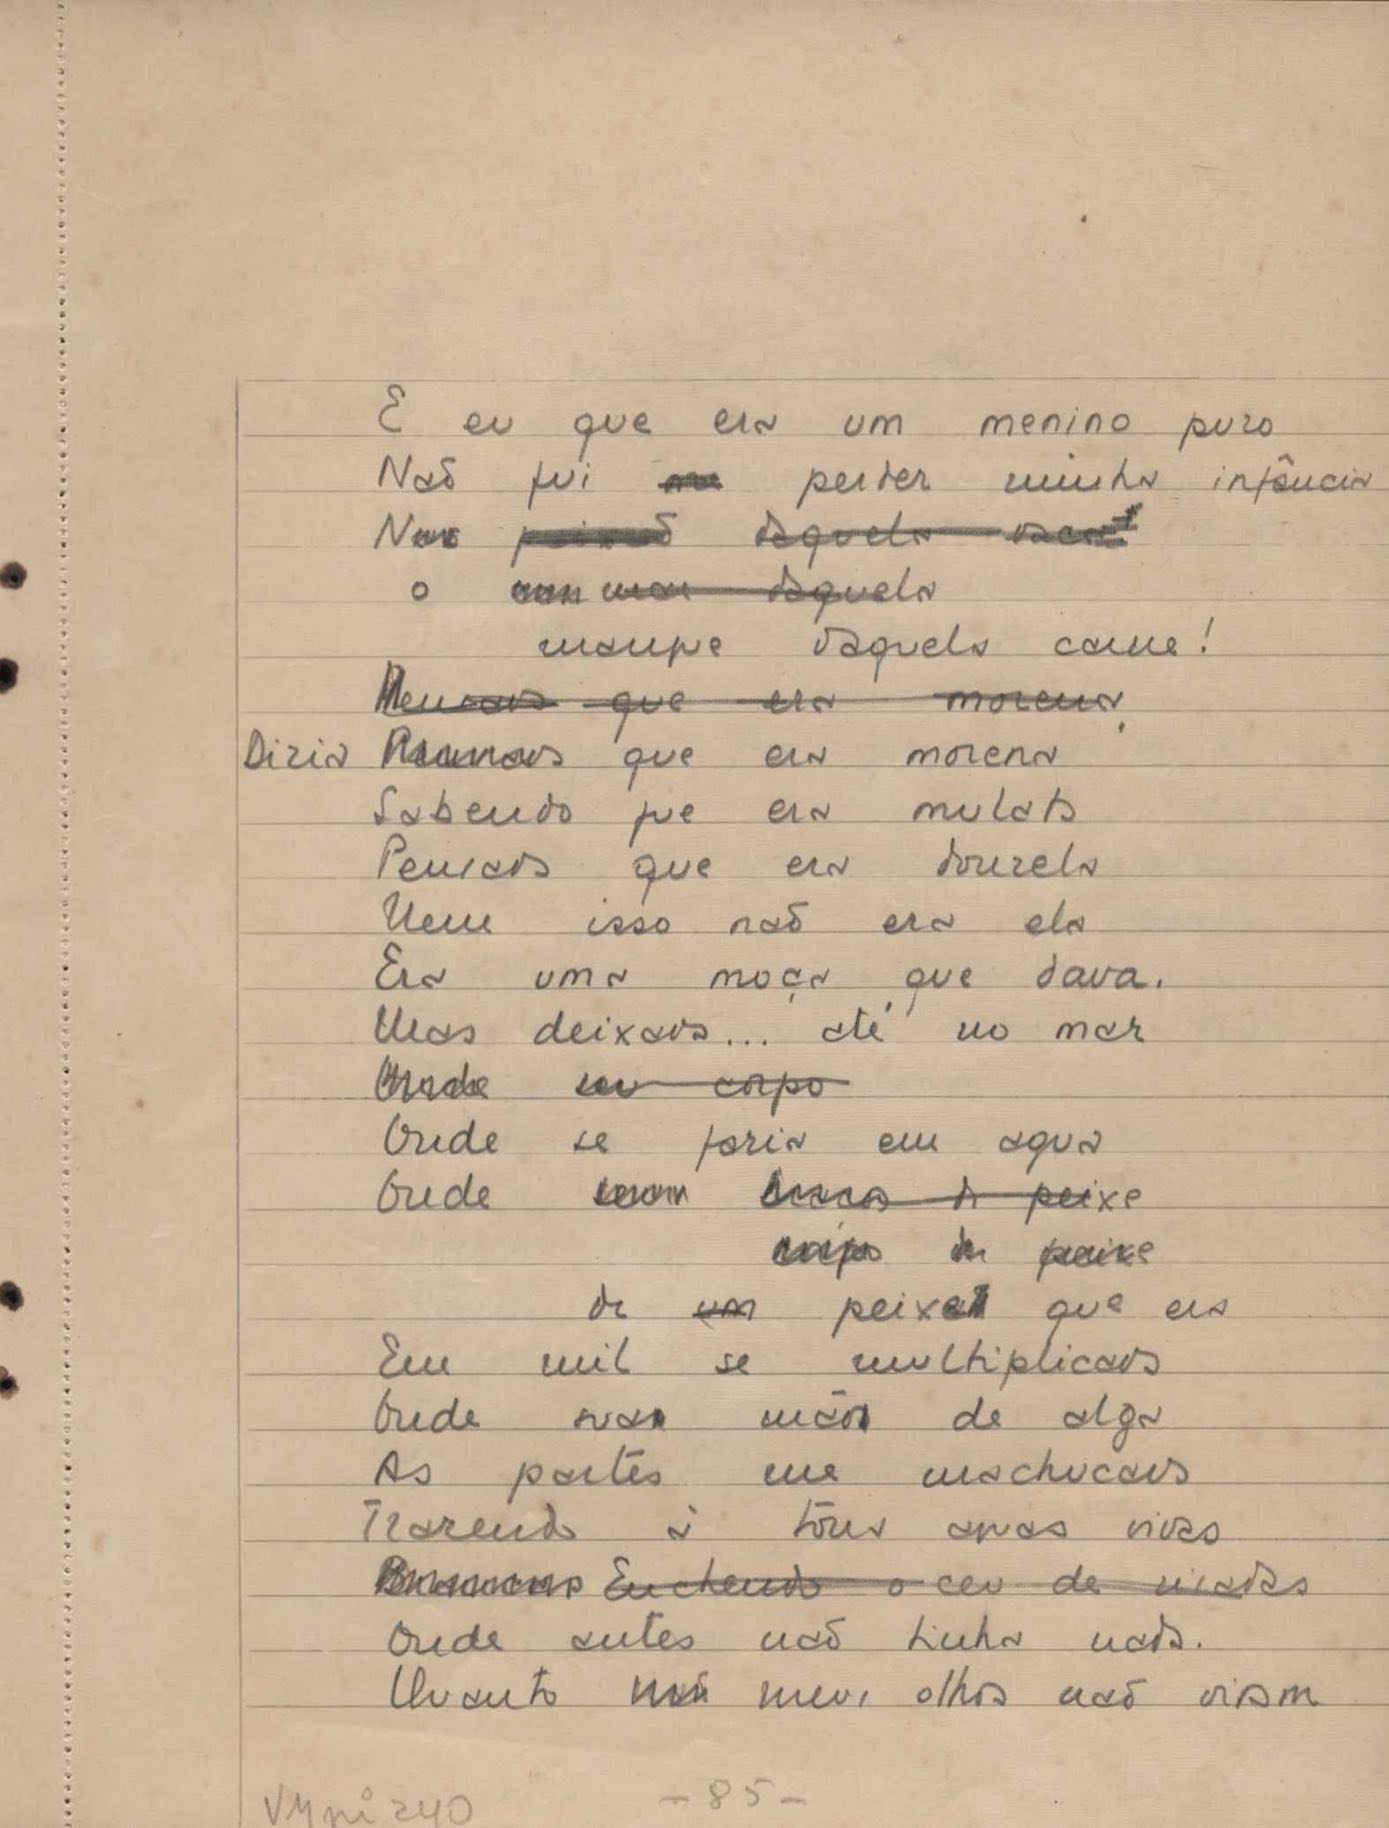 E eu que era um menino puro
Não fui perder minha infância
No
o daquela
mangue daquela carne!
Pensava que era morena
Dizia que era morena
Sabendo que era mulata
Pensava que era donzela
Nem isso não era ela
Era uma moça que dava.
Mas deixava... até no mar
Onde seu corpo
Onde se fazia em agua
Onde de peixe
corpo de peixe
de um peixe que era
Em mil se multiplicava
Onde suas mãos de alga
As partes me machucava
Trazendo à tona aguas vivas
Enchendo o ceu de
Onde antes não tinha nada.
Quanto meus olhos não viam
- 85 -